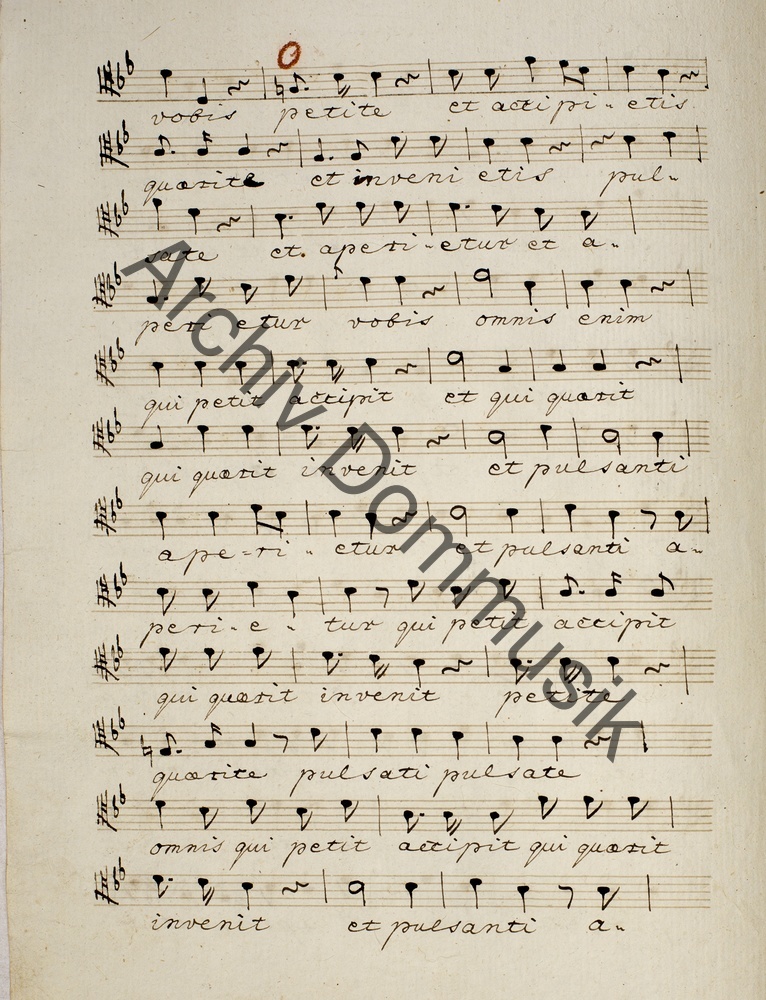 vobis petite et accipi- etis
quærite et inveni etis pul-
sate et. aperi-etur et a-
peri etur vobis omnis enim
qui petit accipit et qui quærit
qui quærit invenit et pulsanti
ape-ri- etur et pulsanti a-
peri-e-tur qui petit accipit
qui quærit invenit petite
quærite pulsati pulsate
omnis qui petit accipit qui quærit
invenit et pulsanti a-
Archiv Dommusik